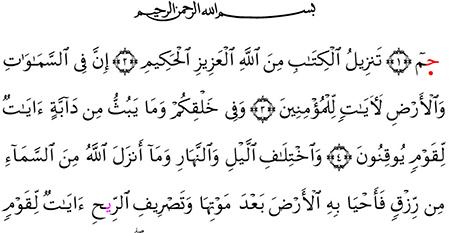 بسم الله الرحمن الرحيم
جمٓ ﴿١﴾ تَنزِيلُ ٱلْكِتَـٰبِ مِنَ ٱللَّهِ ٱلْعَزِيزِ ٱلْحَكِيمِ ﴿٢﴾ إِنَّ فِى ٱلسَّمَـٰوَٰتِ
وَٱلْأَرْضِ لَـَٔايَـٰتٍ لِّلْمُؤْمِنِينَ ﴿٣﴾ وَفِى خَلْقِكُمْ وَمَا يَبُثُّ مِن دَآبَّةٍ ءَايَـٰتٌ
لِّقَوْمٍ يُوقِنُونَ ﴿٤﴾ وَٱخْتِلَـٰفِ ٱلَّيْلِ وَٱلنَّهَارِ وَمَآ أَنزَلَ ٱللَّهُ مِنَ ٱلسَّمَآءِ
مِن رِّزْقٍ فَأَحْيَا بِهِ ٱلْأَرْضَ بَعْدَ مَوْتِهَا وَتَصْرِيفِ ٱلرِّيحِ ءَايَـٰتٌ لِّقَوْمٍ